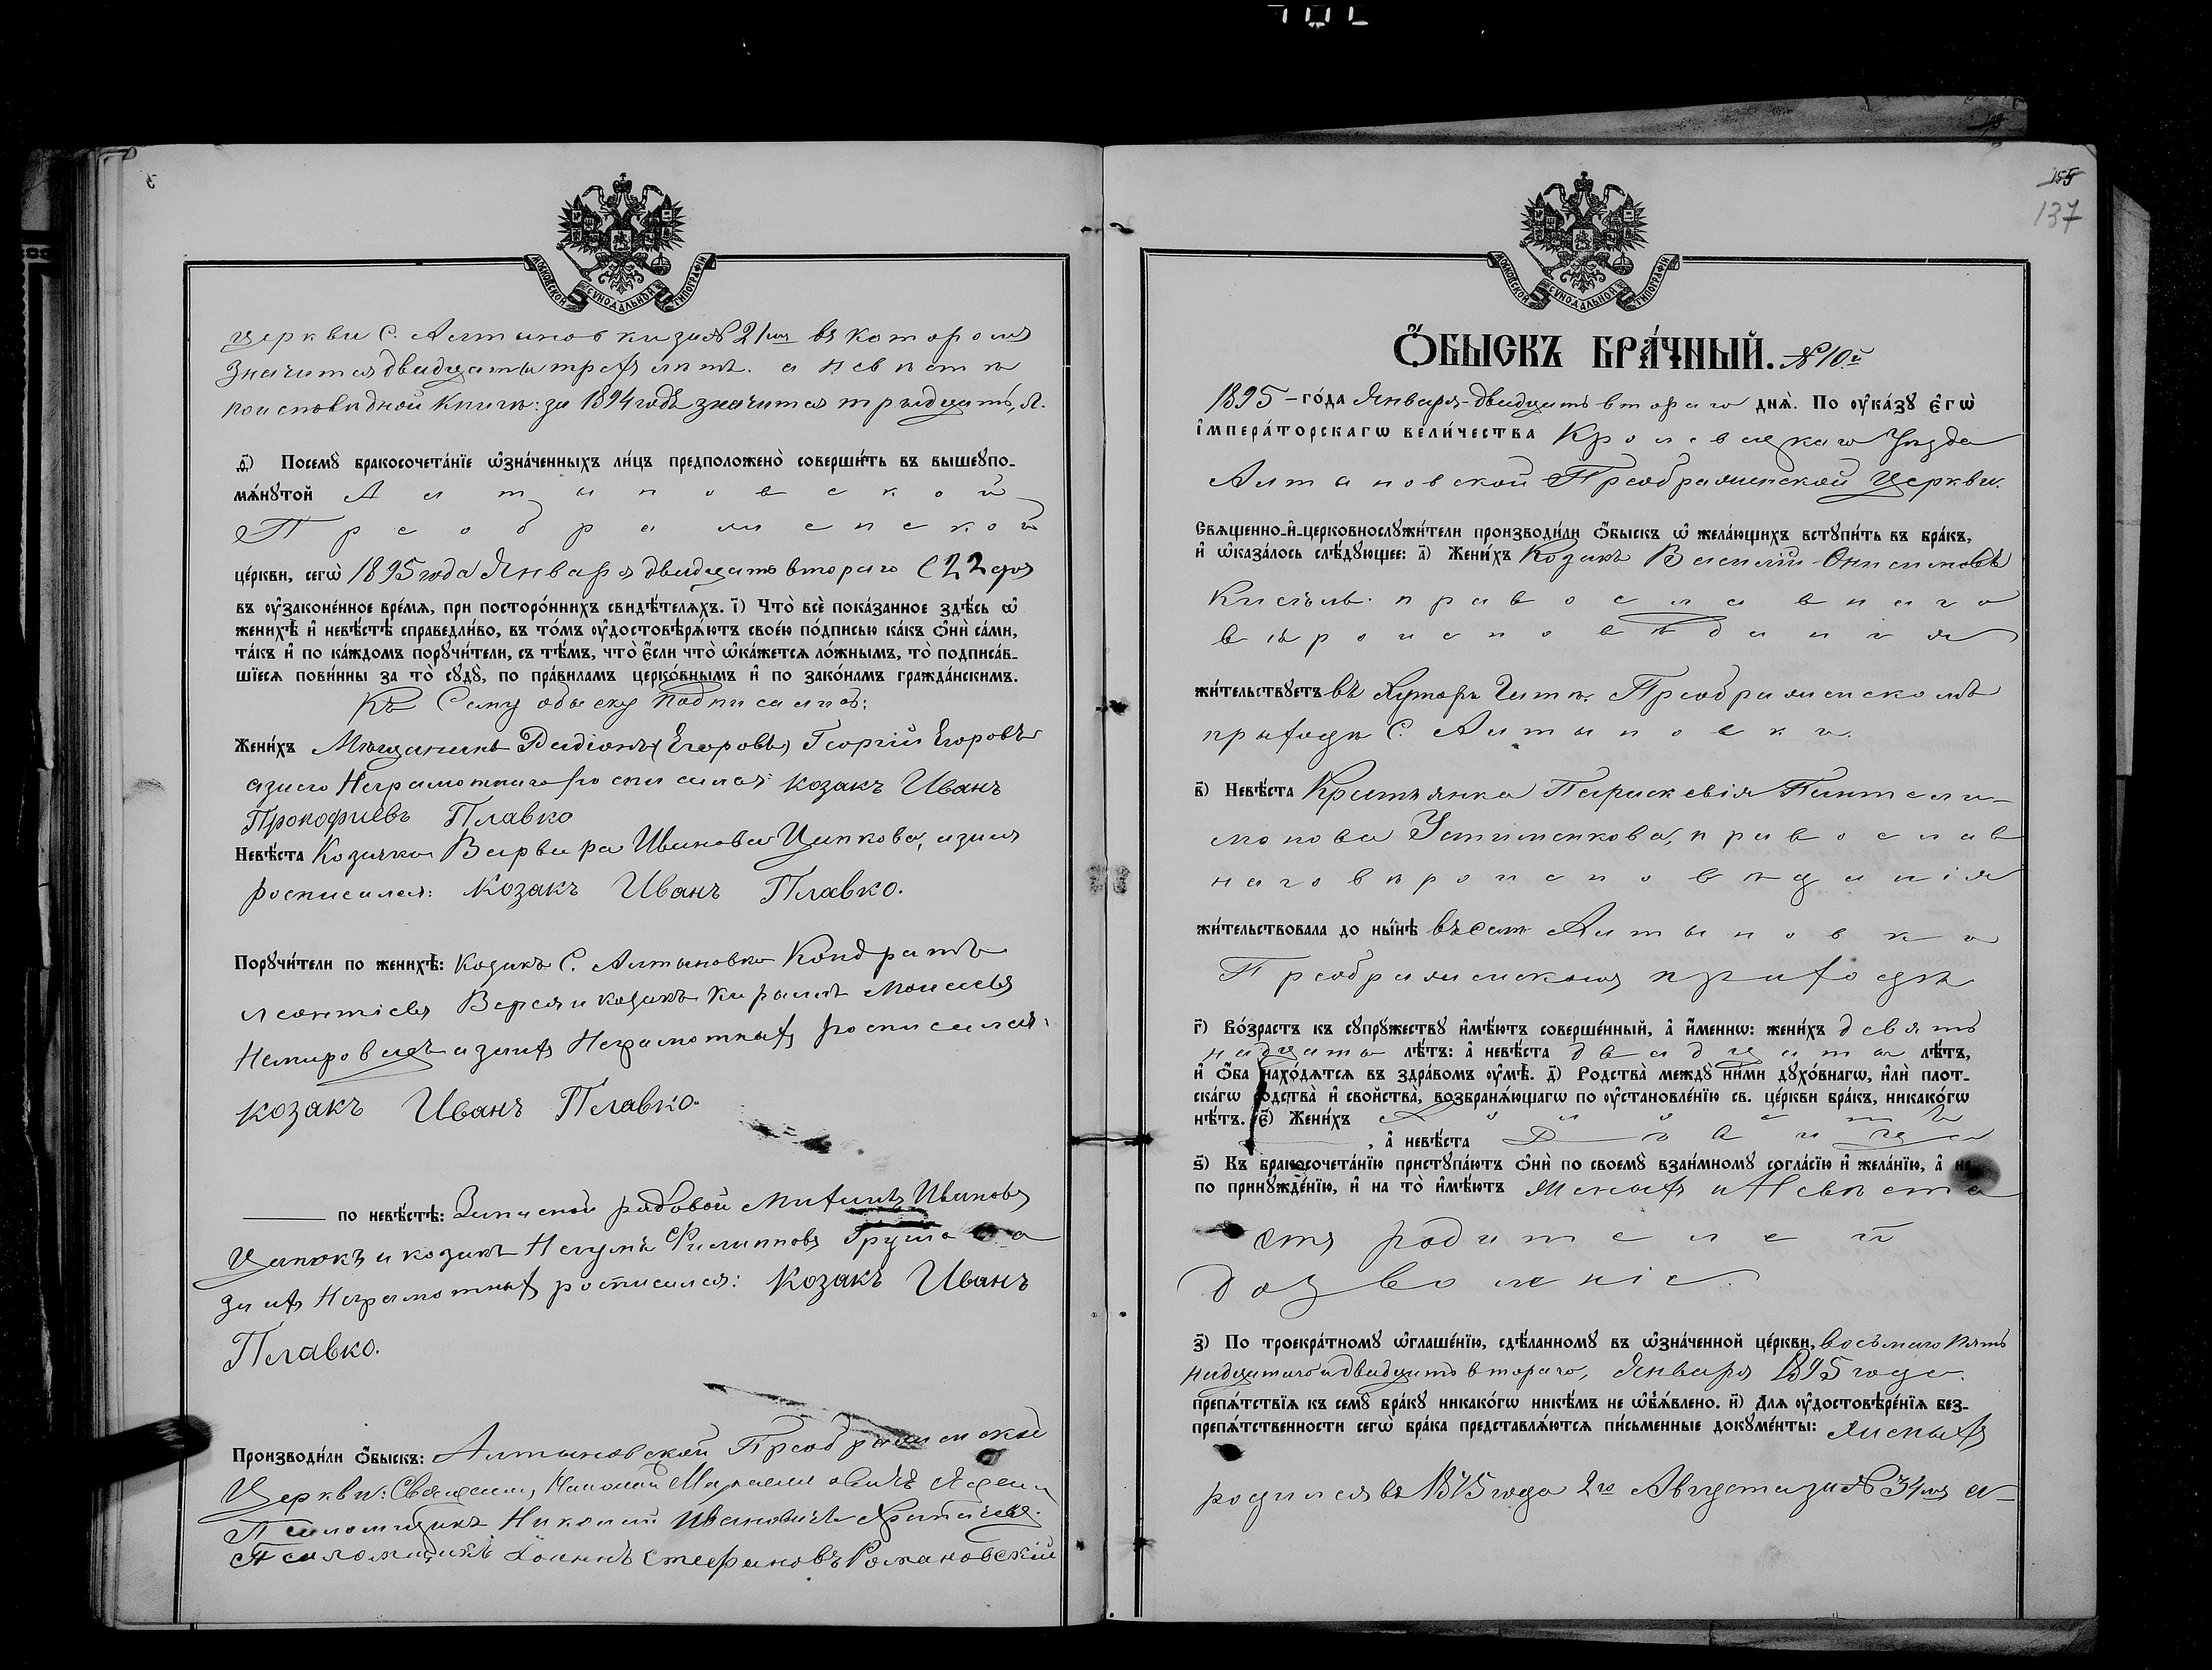 церкви с. Алтыновки за № 21мъ въ которомъ
значится двадцать трехъ лѣтъ. а невѣста
по исповѣдной книгѣ: за 1894 годъ значится тридцать, л.
ѳ҃) Посемꙋ̀ бракосочета́нїе ѡ҆зна́ченныхъ ли́цъ предположено̀ соверши́ть въ вышеꙋпо-
мѧ́нꙋтой Алтыновской
Преображенской
це́ркви, сегѡ̀ 1895 года Января двадцать втораго (22 дня
въ ᲂу҆законе́нное вре́мѧ, при посторо́ннихъ свидѣ́телѧхъ. і҃) Что̀ всѐ пока́занное здѣ́сь ѡ҆
женихѣ̀ и҆ невѣ́стѣ справедли́во, въ то́мъ ᲂу҆достовѣрѧ́ютъ свое́ю по́дписью ка́къ ѻ҆нѝ са́ми,
та́къ и҆ по ка́ждомъ порꙋчи́тели, съ тѣ́мъ, что̀ є҆́сли что̀ ѡ҆ка́жетсѧ ло́жнымъ, то̀ подписа́в-
шїесѧ пови́нны за то̀ сꙋдꙋ̀, по пра́виламъ церко́внымъ и҆ по зако́намъ гражда́нскимъ.
Къ Сему обыску подписались:
Жени́хъ Мѣщанинъ Радіонъ (Егоровъ) Георгій Егоровъ
а за него Неграмотнаго росписался: козакъ Иванъ
Прокофиевъ Плавко
Невѣ́ста Козачка Варвара Иванова Цапкова, а за нея
росписался: Козакъ Иванъ Плавко.
Порꙋчи́тели по женихѣ̀: Козакъ С. Алтыновки Кондратъ
Леонтіевъ Верея и козакъ Кирилъ Моисеевъ
Немировецъ а за нихъ Неграмотныхъ росписался:
козакъ Иванъ Плавко.
по невѣ́стѣ: Запасной рядовой Михаилъ Ивановъ
Цапокъ и козакъ Наумъ Филипповъ
за ихъ Неграмотныхъ росписался: Козакъ Иванъ
Плавко.
Производи́ли ѻ҆́быскъ: Алтыновской Преображенской
Церкви: Священ. Николай
Псаломщикъ Николай Ивановичъ
Псаломщикъ Іоаннъ Стефановъ Романовскій
155
137
Ѻ҆́быскъ бра́чный. № 10й
1895 - го́да Января двадцать втораго днѧ̀. По ᲂу҆ка́зꙋ є҆гѡ̀
і҆мпера́торскагѡ вели́чества Кролевецкаго Уѣзда
Алтыновской Преображенской Церкви.
Свѧщенно-и҆-церковнослꙋжи́тели производи́ли ѻ҆́быскъ ѡ҆ жела́ющихъ встꙋпи́ть въ бра́къ,
и҆ ѡ҆каза́лось слѣ́дꙋющее: а҃) Жени́хъ Козакъ Василій Онисимовъ
Кисель. православнаго
вѣроисповѣданія
жи́тельствꙋетъ въ Хуторѣ Преображенскомъ
приходѣ С. Алтыновки.
в҃) Невѣ́ста Крестьянка Параскевія Пантели-
монова Устименкова, православ
наго вѣроисповѣданія
жи́тельствовала до ны́нѣ въ селѣ Алтыновкѣ
Преображенскомъ приходѣ
г҃) Во́зрастъ къ сꙋпрꙋ́жествꙋ и҆мѣ́ютъ соверше́нный, а҆ и҆́меннѡ: жени́хъ девят
надцать лѣ́тъ: а҆ невѣ́ста двадцать лѣ́тъ,
и҆ ѻ҆́ба нахо́дѧтсѧ въ здра́вомъ ᲂу҆мѣ̀. д҃) Родства̀ междꙋ̀ ни́ми дꙋхо́внагѡ, и҆лѝ плот-
ска́гѡ родства̀ и҆ сво́йства, возбранѧ́ющагѡ по ᲂу҆становле́нїю св. це́ркви бра́къ, никако́гѡ
нѣ́тъ. є҃) Жени́хъ Холостъ
, а҆ невѣ́ста Дѣвица
ѕ҃) Къ бракосочета́нїю пристꙋпа́ютъ ѻ҆нѝ по своемꙋ̀ взаи́мномꙋ согла́сїю и҆ жела́нїю, а҆ не
по принꙋжде́нїю, и҆ на то̀ и҆мѣ́ютъ Женихъ и Невѣста
отъ родителей
дозволеніе
з҃) По троекра́тномꙋ ѡ҆глаше́нїю, сдѣ́ланномꙋ въ ѡ҆зна́ченной це́ркви, восьмаго пят
надцатаго и двадцать втораго, Января 1895 года.
препѧ́тствїѧ къ семꙋ̀ бра́кꙋ никако́гѡ никѣ́мъ не ѡ҆б̾ѧ́влено. и҃) Длѧ ᲂу҆достовѣре́нїѧ без-
препѧ́тственности сегѡ̀ бра́ка представлѧ́ютсѧ пи́сьменные докꙋме́нты: Женихъ
родился въ 1875 года 2го Августа за № 34мъ а